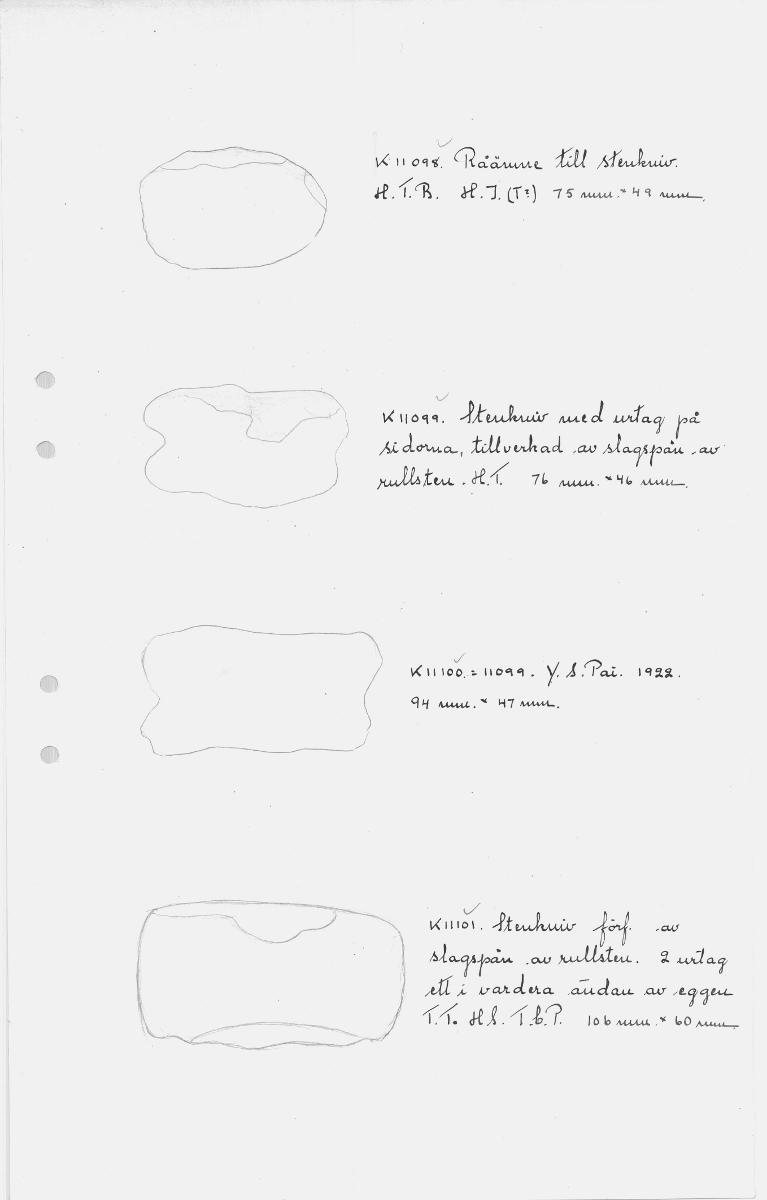 K 11098. Råämne till stenkniv.
H.T.B. H.J. (T?) 75 mm. × 49 mm.
K 11099. Stenkniv med urtag på
sidorna, tillverkad av slagspån av
rullsten. H.T. 76 mm. × 46 mm.
K 11100. = 11099. Y. S. Pai. 1922.
94 mm. × 47 mm.
K 11101. Stenkniv förf. av
slagspån av rullsten. 2 urtag
ett i vardera ändan av eggen
T.T. H.S. 106 mm. × 60 mm.